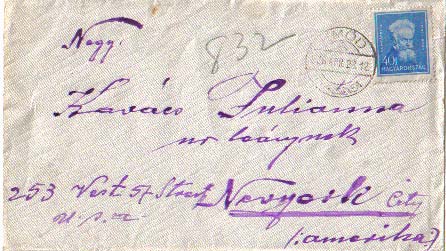 Nagy.
832
40f
MAGYARORSZÁG
Kovács Julianna
ur leánynek
253 Vest 57 Streat Nevyork City
U. S. a.
(:amerika:)